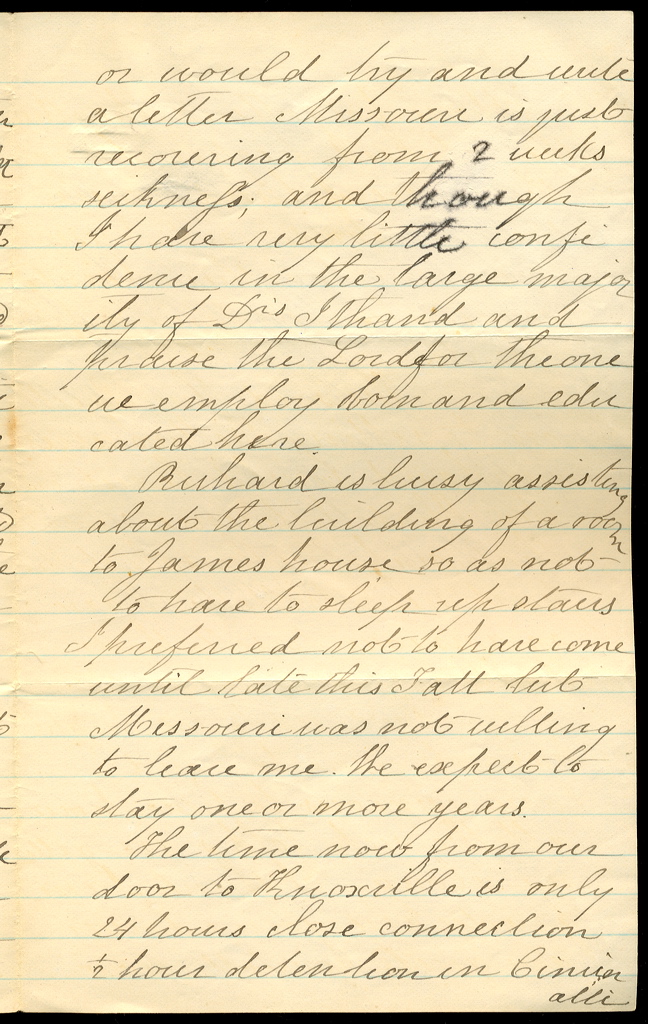 or would try and write
a letter Missouri is just
recovering from 2 weeks
seikness; and though
I have very little confi
dence in the large major
ity of Drs I thand and
praise the Lord for the one
we employ born and edu
cated here.
Richard is busy assisting
about the building of a room
to James house so as not
to have to sleep up stairs
I preferred not to have come
until late this Fall but
Messouri was not willing
to leave me. We expect to
stay one or more years.
The time now from our
door to Knoxville is only
24 hours close connection
½ hour detention in Cincin
atti